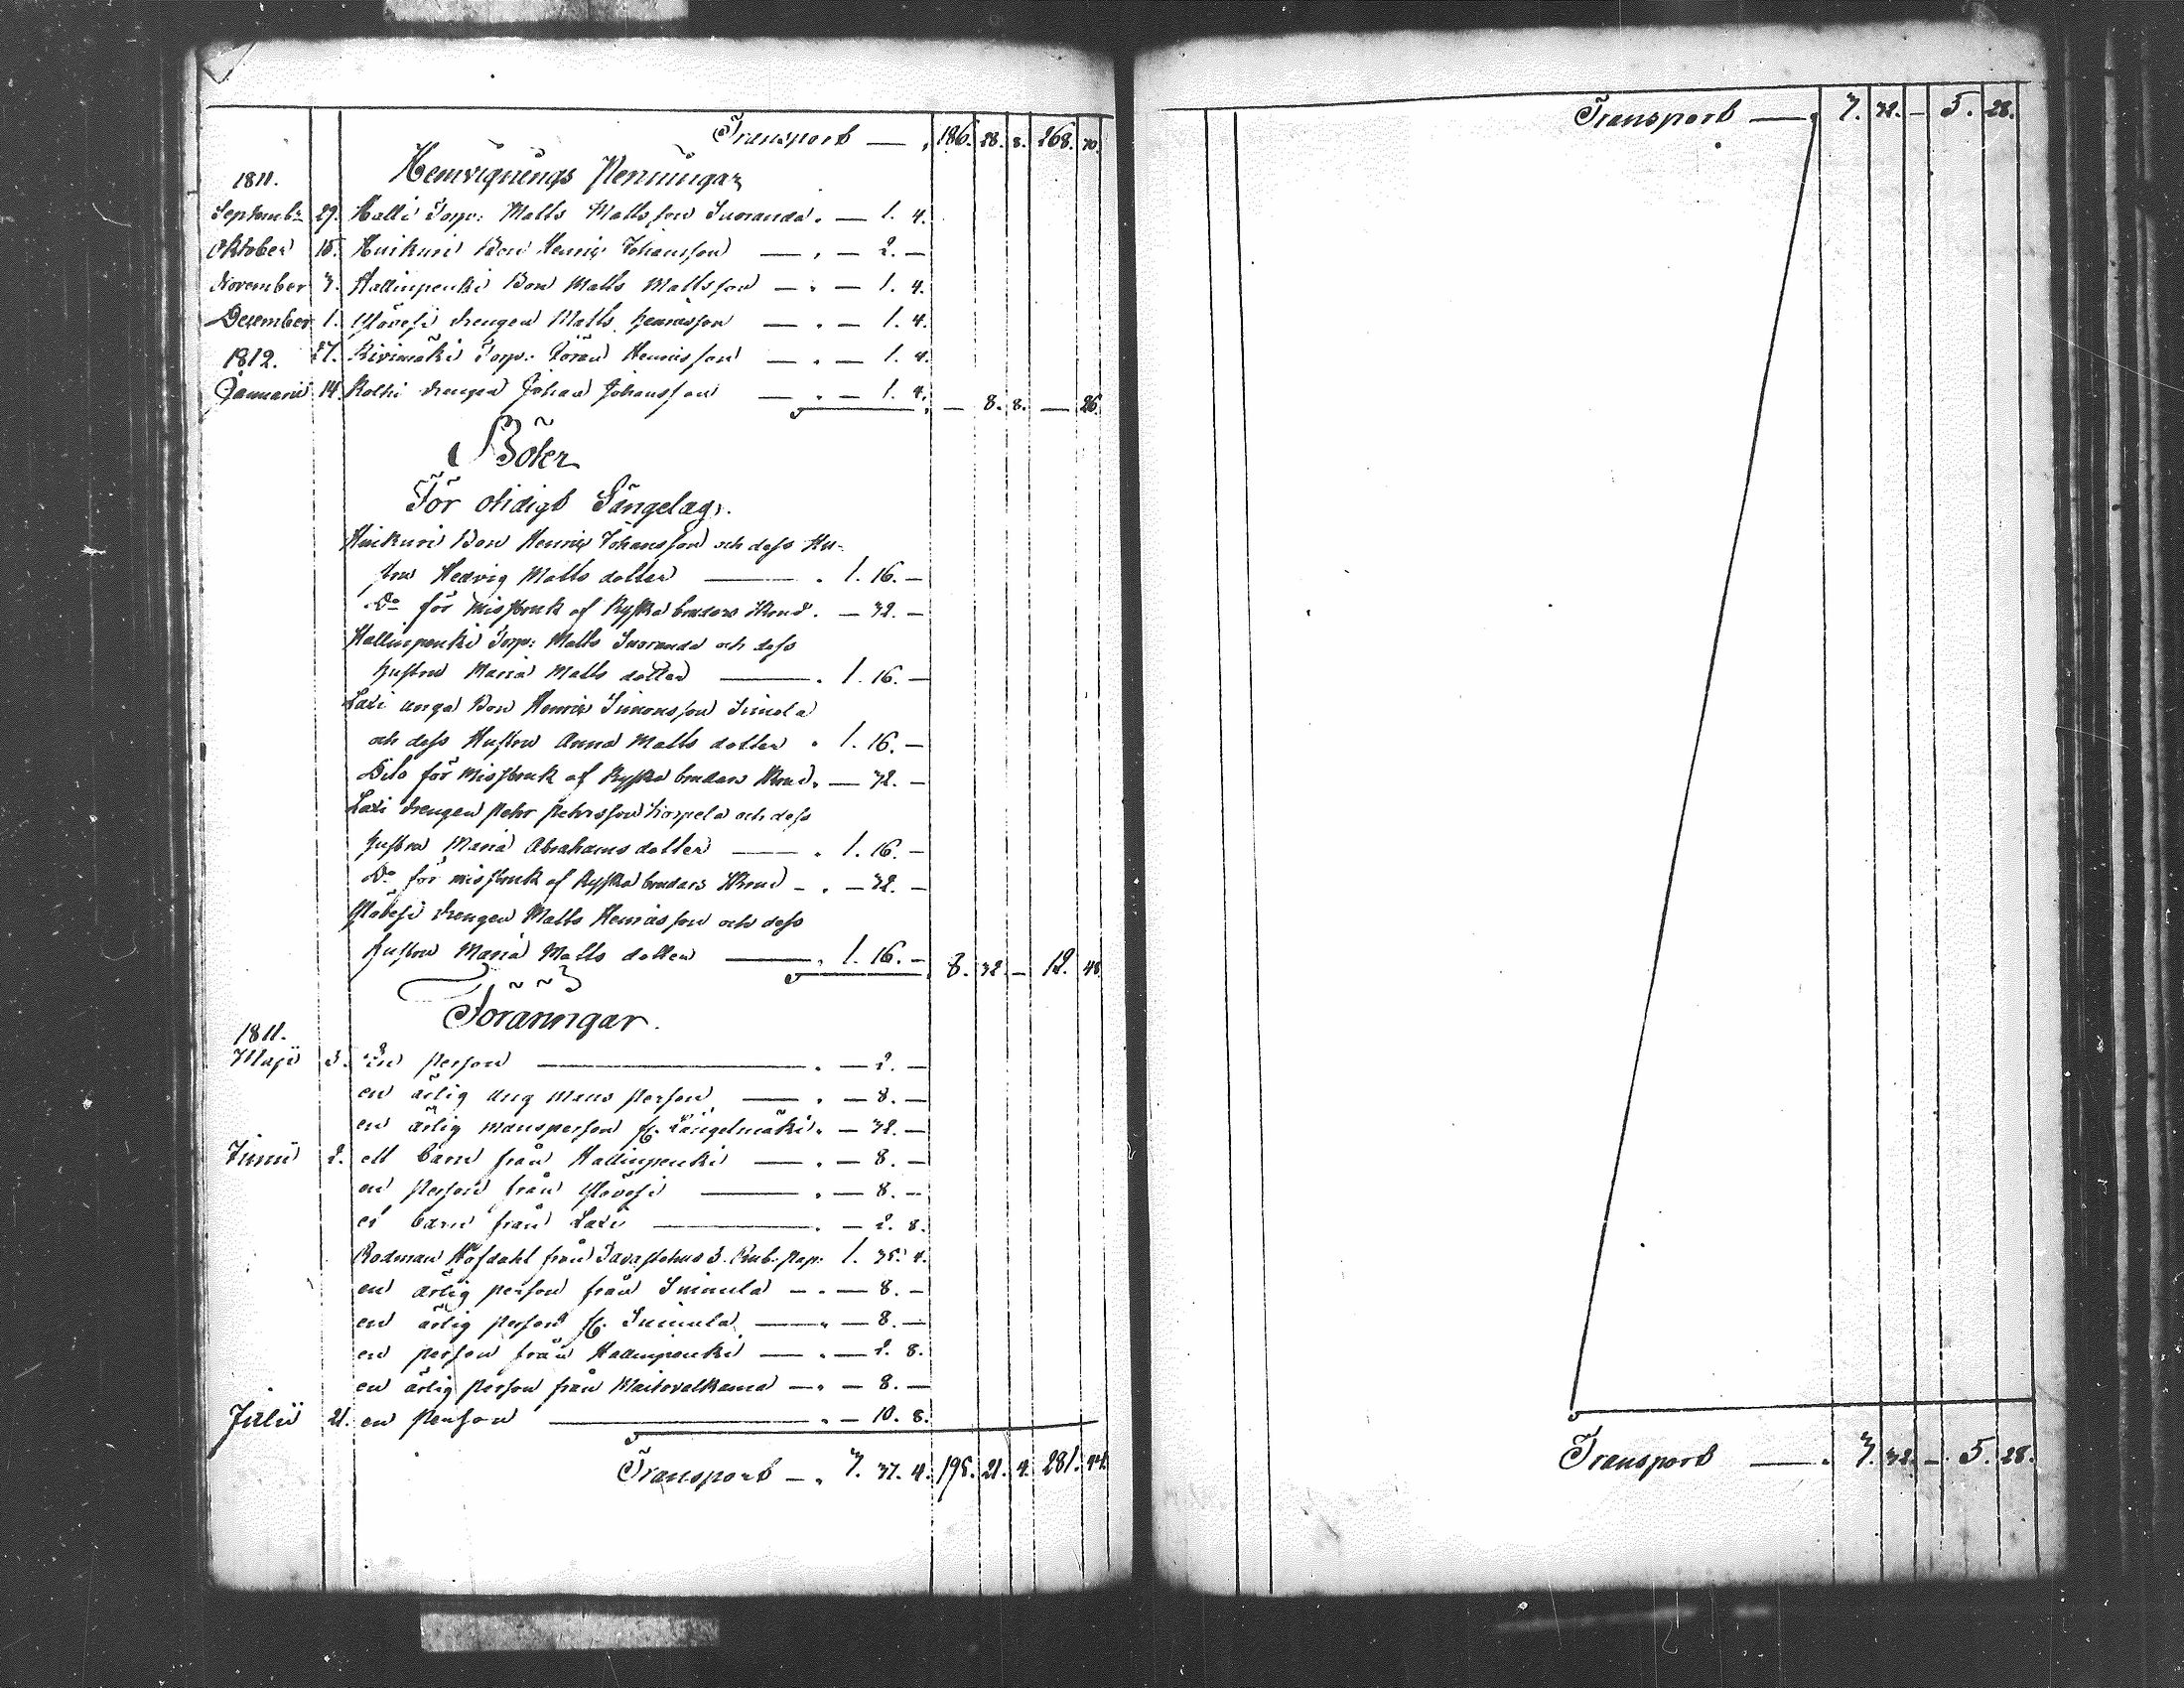 Transport — 186. 28. 8. 268. 70.
1811. Hemvigнings Penningar
Septemb: 29. Halli Torp: Matts Mattsson Suoranda. — 1. 4.
Oktober 15. Huikuri Bon Henric Johansson — 2. —
November 3. Hallinpenki Bon Matts Mattsson — 1. 4.
December 1. Ylövesi drengen Matts Henricsson — 1. 4.
1812. 27. Kivimäki Torp: Göran Henricsson — 1. 4.
Januarii 14. drengen Johan Johansson — 1. 4. — 8. 8. — 26
Böter
För olidigt Sängelag.
Huikuri Bon Henric Johansson och dess Hu-
stru Hedvig Matts dotter — 1. 16. —
Do för missbruk af Ryska brudars Skrud. — 32. —
Hallinpenki Torp: Matts Suoranda och dess
hustru Maria Matts dotter — 1. 16. —
Laxi unga Bon Henric Simonsson Simola
och dess Hustru Anna Matts dotter 1. 16. —
Dito för missbruk af Ryska brudars Skrud. — 32. —
Laxi drengen Pehr Pehrsson Korpela och dess
hustru Maria Abrahams dotter — 1. 16. —
Do för missbruk af Ryska brudars Skrud — 32. —
Ylövesi drengen Matts Henricsson och dess
hustru Maria Matts dotter — 1. 16. — 8. 32. — 12. 48
Föräringar.
1811.
Maji 3. En person — 2. —
en ärlig ung mans person — 8. —
en ärlig mansperson fr. Längelmäki. — 32. —
Junii 2. ett barn från Hallinpenki — 8. —
en person från Ylövesi — 8. —
et barn från Laxi — 2. 8.
Rådman Höfdahl från Tavastehus 3. Rub: pap: 1. 35. 4.
en ärlig person från Simula — 8. —
en ärlig person fr. Simula — 8. —
en person från Hallinpenki — 2. 8.
en ärlig person från Maitovalkama — 8. —
Julii 21. en person — 10. 8.
Transport — 3. 37. 4. 195. 21. 4. 281. 44.
Transport — 3. 32. — 5. 28.
Transport — 3. 32. — 5. 28.